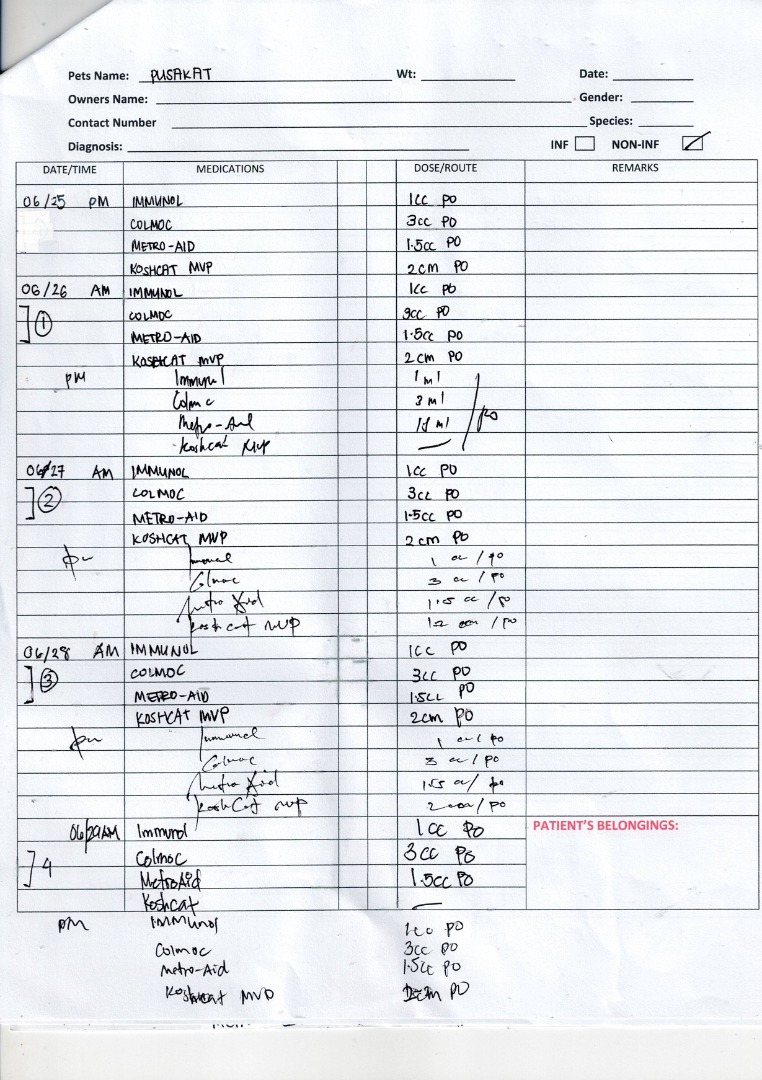 Pets Name: PUSAKAT Wt: Date:
Owners Name: Gender:
Contact Number Species:
Diagnosis: INF NON-INF
DATE/TIME MEDICATIONS DOSE/ROUTE REMARKS
06/25 PM IMMUNOL 1cc PO
COLMOC 3cc PO
METRO-AID 1.5cc PO
KOSHCAT MVP 2cm PO
06/26 AM IMMUNOL 1cc PO
1 COLMOC 3cc PO
METRO-AID 1.5cc PO
KOSHCAT MVP 2cm PO
PM Immunol 1 ml
Colmoc 3 ml
Metro-Aid 1.5 ml PO
Koshcat MVP —
06/27 AM IMMUNOL 1cc PO
2 COLMOC 3cc PO
METRO-AID 1.5cc PO
KOSHCAT MVP 2cm PO
pm Immunol 1 cc / po
Colmoc 3 cc / po
Metro Aid 1.5 cc / po
Koshcat MVP / po
06/28 AM IMMUNOL 1cc PO
3 COLMOC 3cc PO
METRO-AID 1.5cc PO
KOSHCAT MVP 2cm PO
pm Immunol 1 cc / po
Colmoc 3 cc / po
Metro Aid 1.5 cc / po
KoshCat MVP / po
06/29 AM Immunol 1cc PO
PATIENT'S BELONGINGS:
4 Colmoc 3cc PO
MetroAid 1.5cc PO
Koshcat —
PM IMMUnol PO
Colmoc 3cc PO
Metro-Aid 1.5cc PO
Koshcat MVP PO